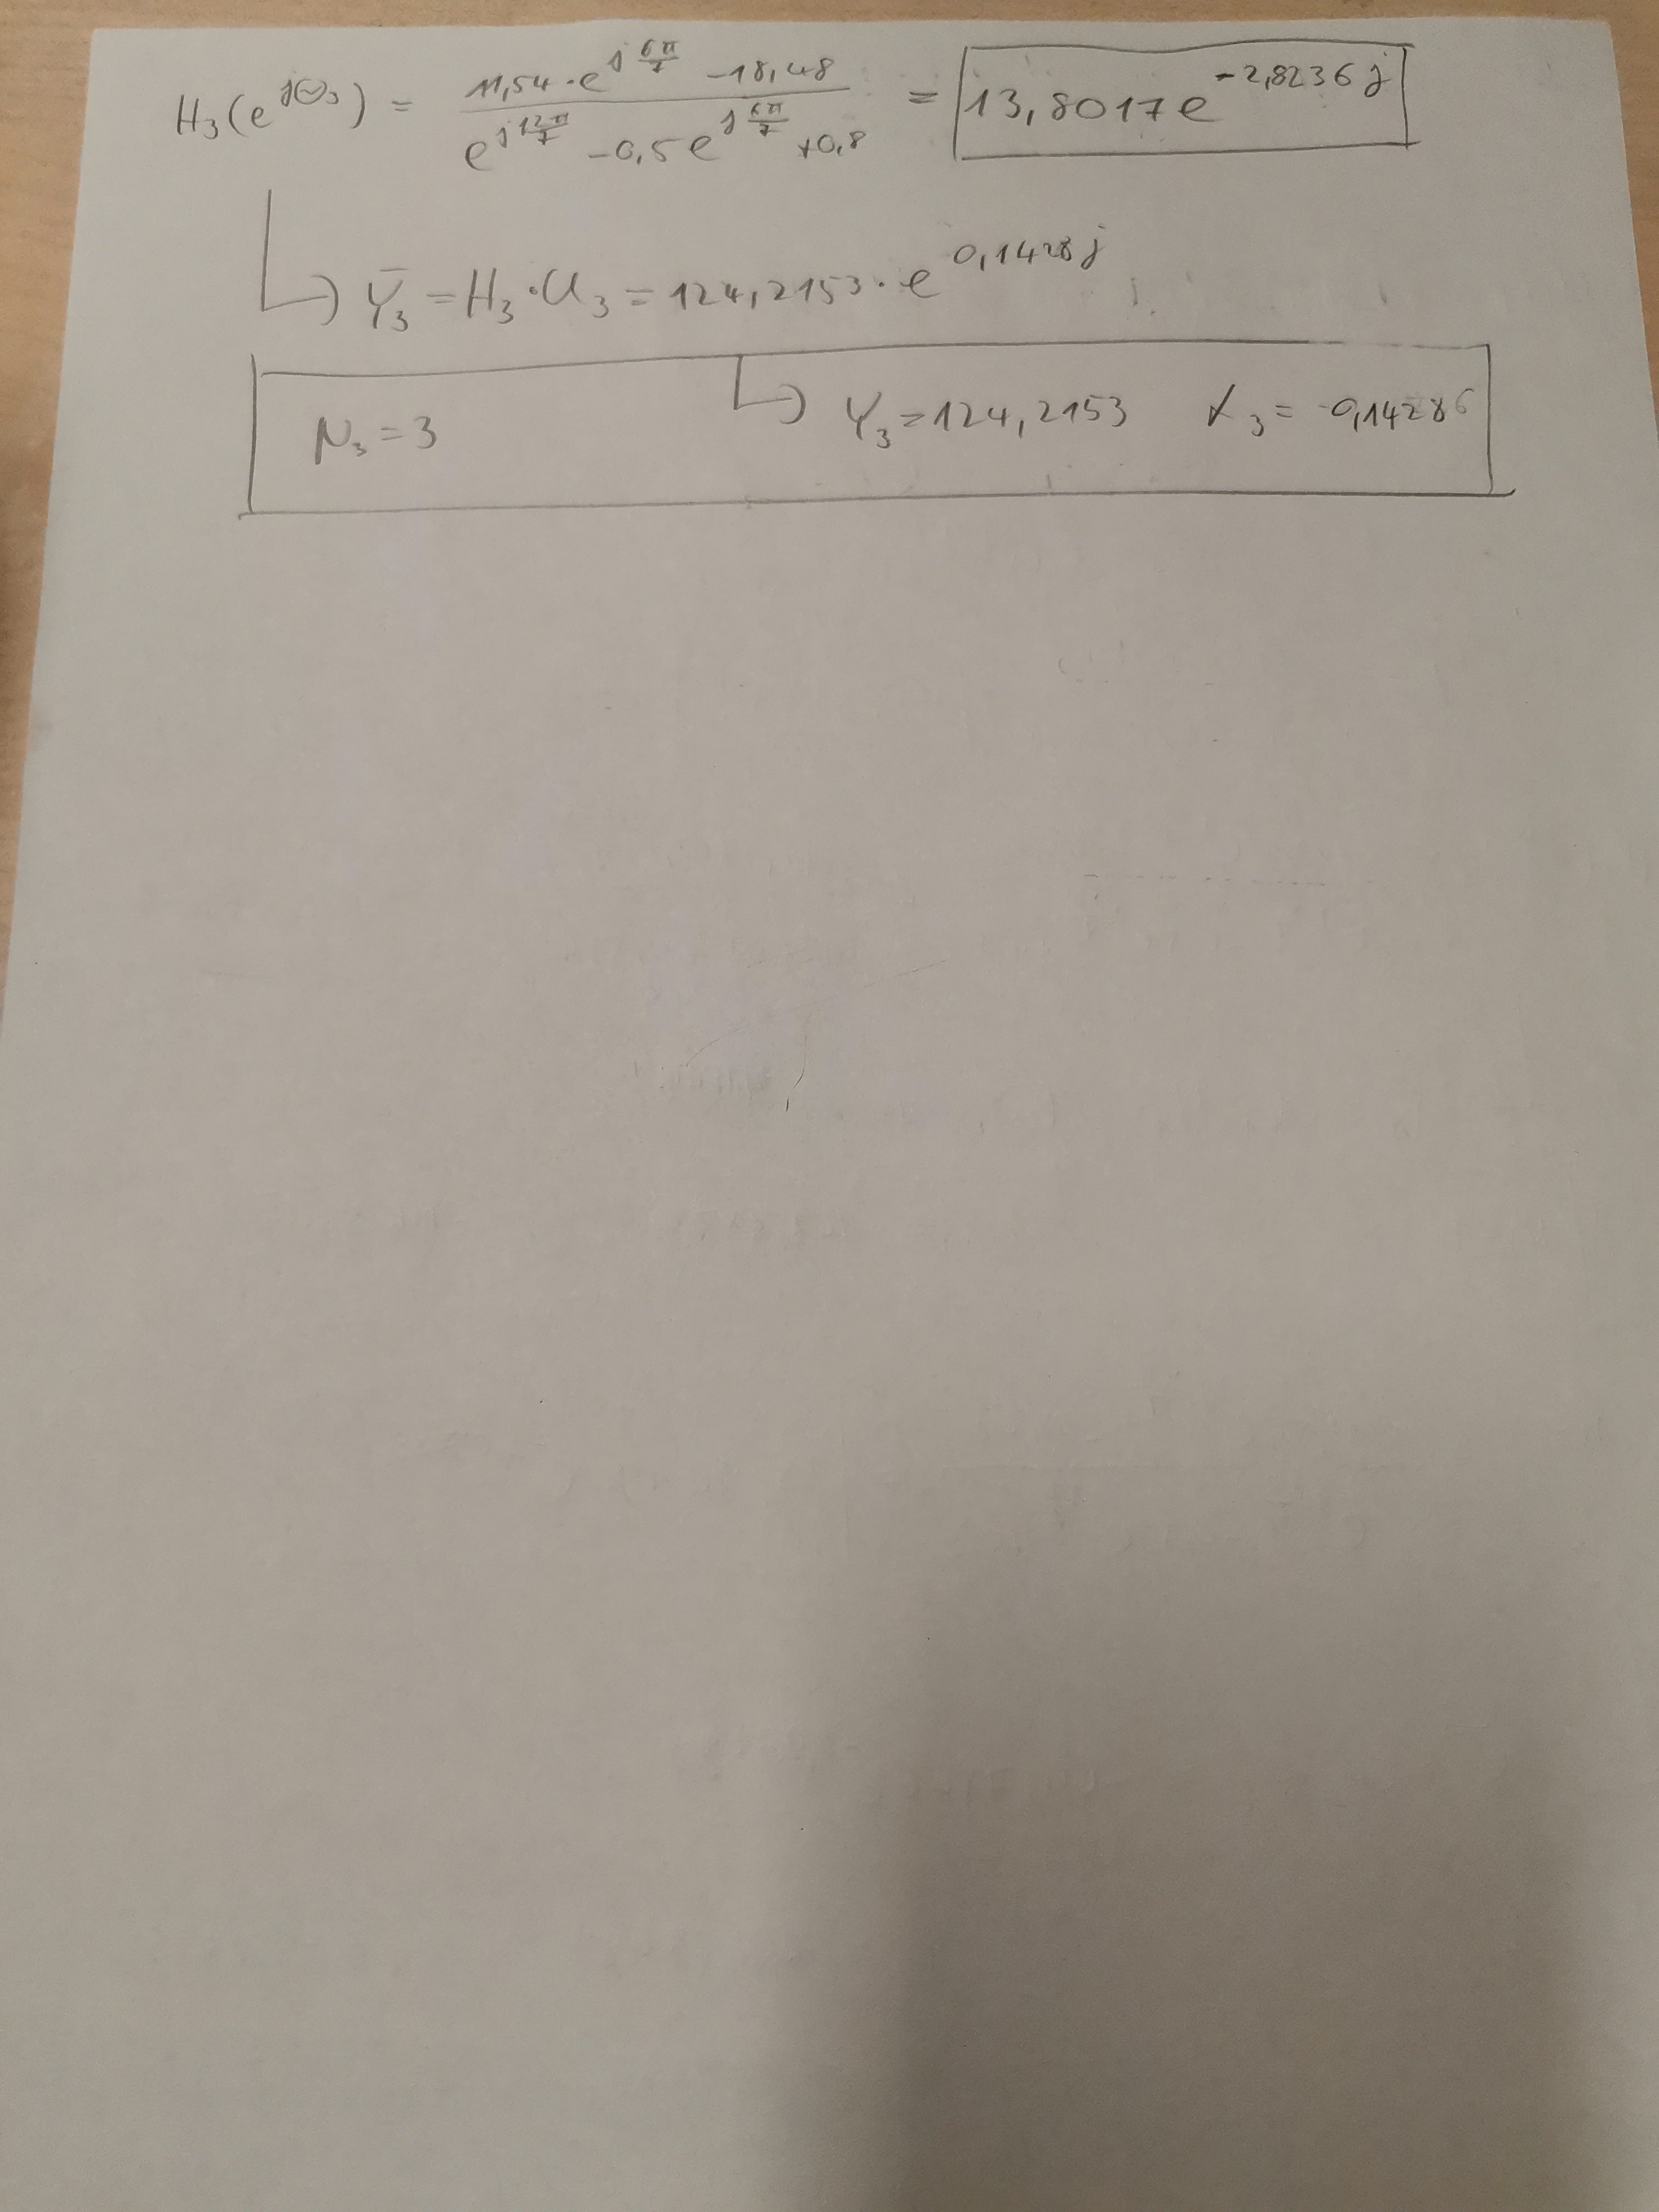 H₃(e^{jϴ₃}) = \frac{11,54·e^{j\frac{6π}{7}} -18,48}{e^{j\frac{12π}{7}} -0,5e^{j\frac{6π}{7}} +0,8} = 13,8017e^{-2,8236j}
Ȳ₃ = H₃·U₃ = 124,2153·e^{0,1428j}
N₃ = 3 Y₃ = 124,2153 α₃ = 0,14286